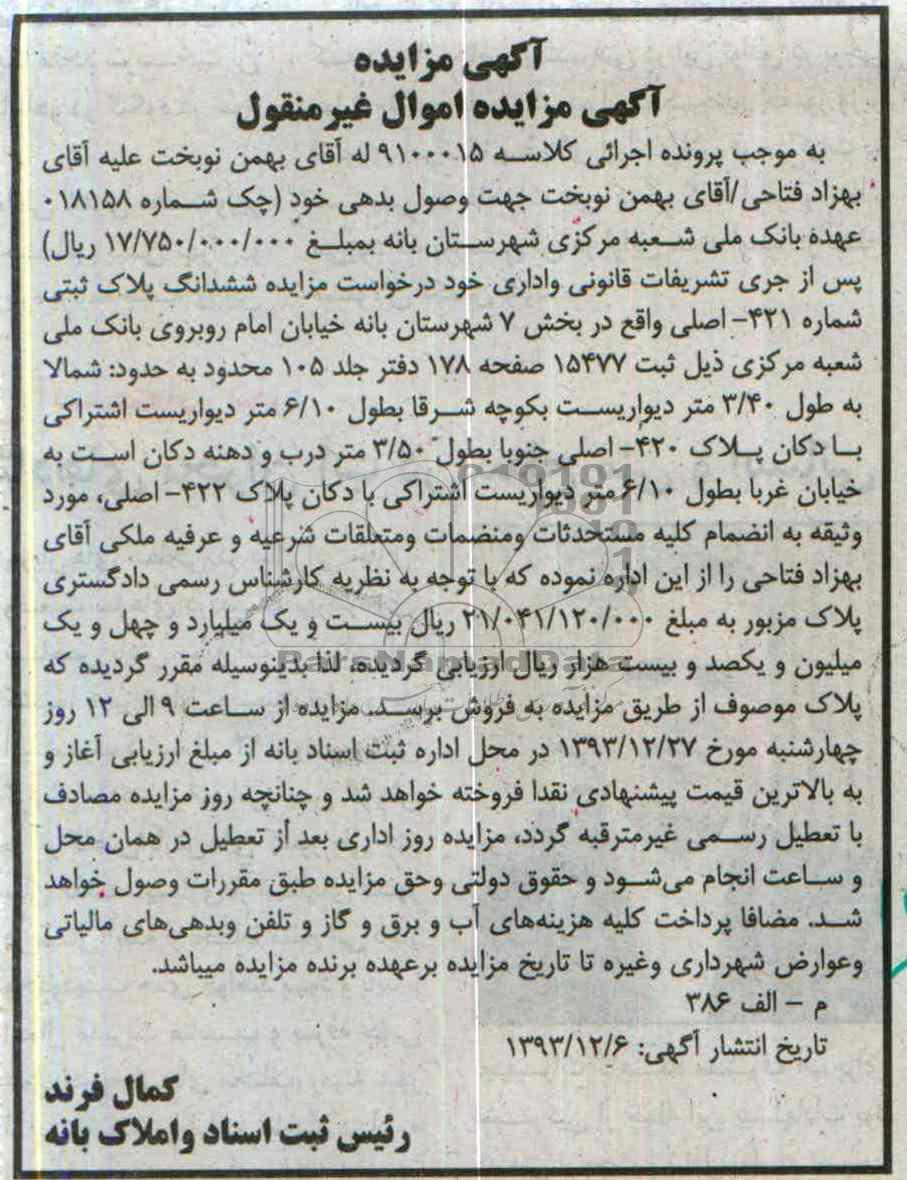 آگهی مزایده
آگهی مزایده اموال غیرمنقول
به موجب پرونده اجرائی کلاسه ۹۱۰۰۰۱۵ له آقای بهمن نوبخت علیه آقای
بهزاد فتاحی/آقای بهمن نوبخت جهت وصول بدهی خود (چک شماره ۰۱۸۱۵۸
عهده بانک ملی شعبه مرکزی شهرستان بانه بمبلغ ۱۷/۷۵۰/۰۰۰/۰۰۰ ریال)
پس از جری تشریفات قانونی واداری خود درخواست مزایده ششدانگ پلاک ثبتی
شماره ۴۲۱- اصلی واقع در بخش ۷ شهرستان بانه خیابان امام روبروی بانک ملی
شعبه مرکزی ذیل ثبت ۱۵۴۷۷ صفحه ۱۷۸ دفتر جلد ۱۰۵ محدود به حدود: شمالا
به طول ۳/۴۰ متر دیواریست بکوچه شرقا بطول ۶/۱۰ متر دیواریست اشتراکی
با دکان پلاک ۴۲۰- اصلی جنوبا بطول ۳/۵۰ متر درب و دهنه دکان است به
خیابان غربا بطول ۶/۱۰ متر دیواریست اشتراکی با دکان پلاک ۴۲۲- اصلی، مورد
وثیقه به انضمام کلیه مستحدثات ومنضمات ومتعلقات شرعیه و عرفیه ملکی آقای
بهزاد فتاحی را از این اداره نموده که با توجه به نظریه کارشناس رسمی دادگستری
پلاک مزبور به مبلغ ۲۱/۰۴۱/۱۲۰/۰۰۰ ریال بیست و یک میلیارد و چهل و یک
میلیون و یکصد و بیست هزار ریال ارزیابی گردیده، لذا بدینوسیله مقرر گردیده که
پلاک موصوف از طریق مزایده به فروش برسد. مزایده از ساعت ۹ الی ۱۲ روز
چهارشنبه مورخ ۱۳۹۳/۱۲/۲۷ در محل اداره ثبت اسناد بانه از مبلغ ارزیابی آغاز و
به بالاترین قیمت پیشنهادی نقدا فروخته خواهد شد و چنانچه روز مزایده مصادف
با تعطیل رسمی غیرمترقبه گردد، مزایده روز اداری بعد از تعطیل در همان محل
و ساعت انجام می‌شود و حقوق دولتی وحق مزایده طبق مقررات وصول خواهد
شد. مضافا پرداخت کلیه هزینه‌های آب و برق و گاز و تلفن وبدهی‌های مالیاتی
وعوارض شهرداری وغیره تا تاریخ مزایده برعهده برنده مزایده میباشد.
م – الف ۳۸۶
تاریخ انتشار آگهی: ۱۳۹۳/۱۲/۶
کمال فرند
رئیس ثبت اسناد واملاک بانه
ParsNamadData